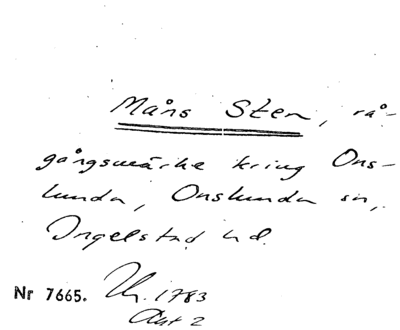 Måns Sten, rå-
gångsmärke kring Ons-
lunda, Onslunda sn,
Ingelstad hd.
Nr 7665. Lh. 1783
Akt 2